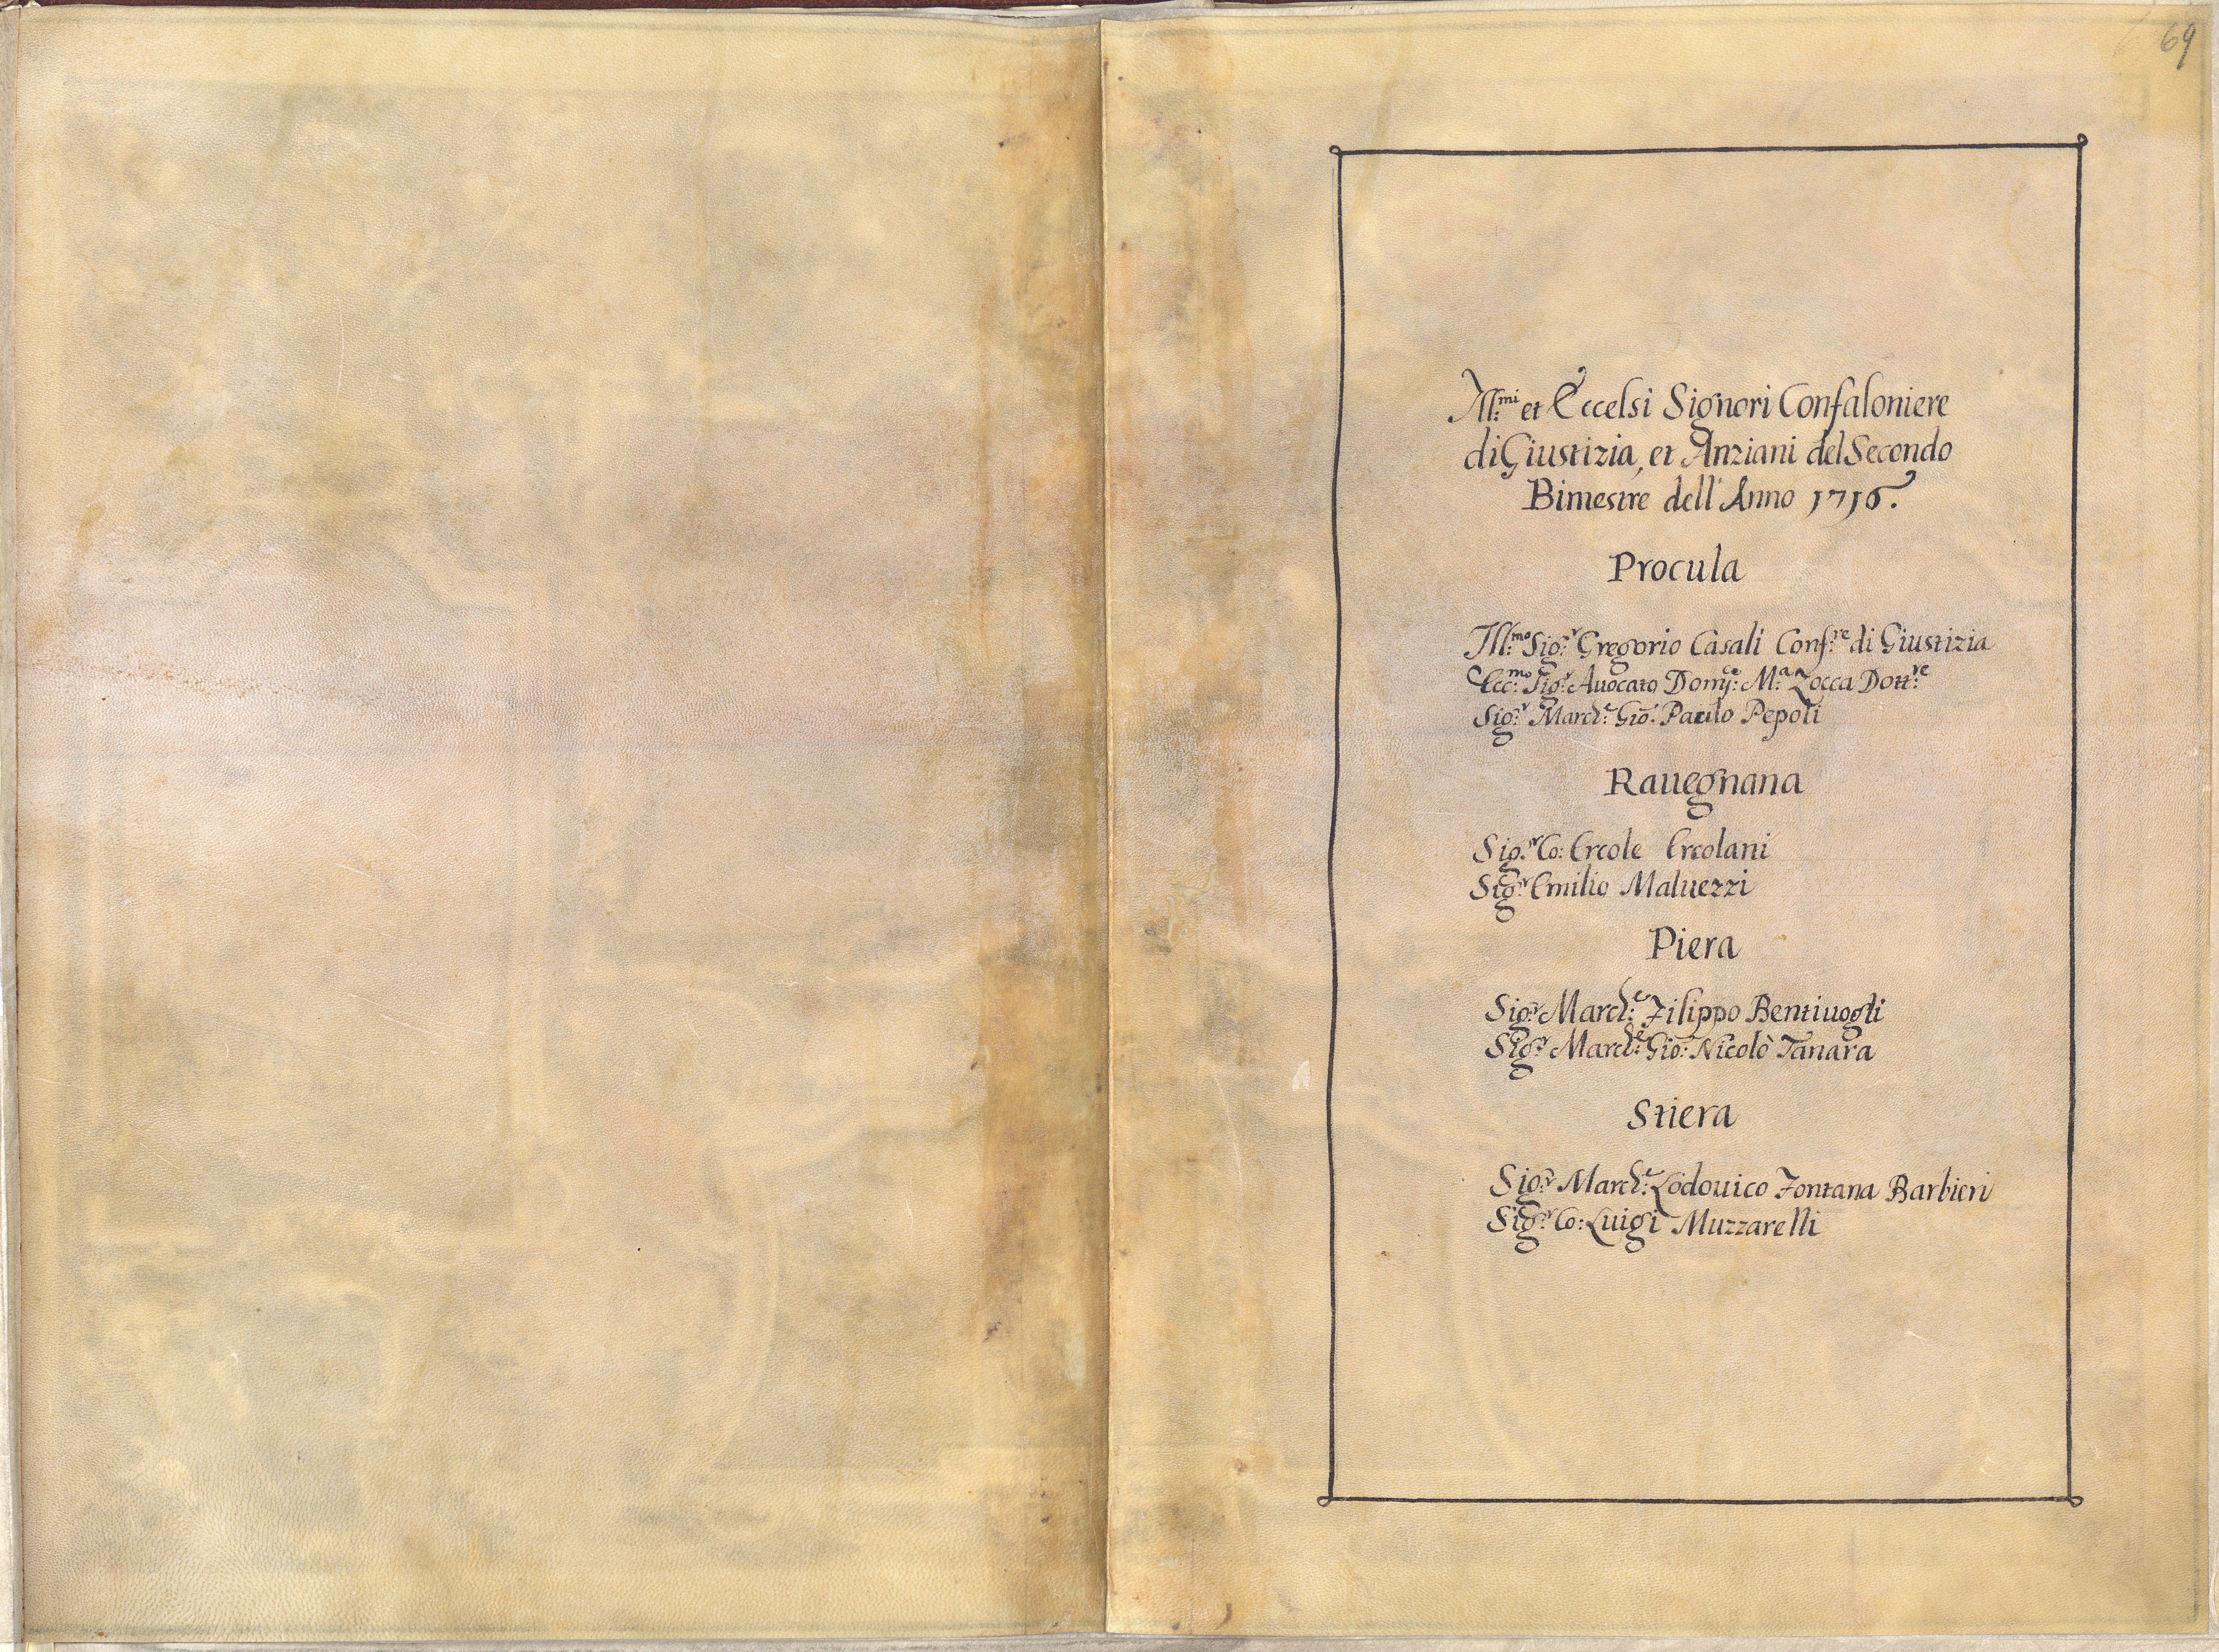 69
Ill:mi et Eccelsi Signori Confaloniere
di Giustizia, et Anziani del Secondo
Bimestre dell'Anno 1716.
Procula
Ill:mo Sig:r Gregorio Casali Conf:re di Giustizia
Ecc:mo Sig:r Auocato Dom:ce M:a Zocca Dott:re
Sig:r March:e Gio: Paulo Pepoli
Rauegnana
Sig:r Co: Ercole Ercolani
Sig:r Emilio Maluezzi
Piera
Sig:r March:e Filippo Bentiuogli
Sig:r March:e Gio: Nicolò Tanara
Stiera
Sig:r March:e Lodouico Fontana Barbieri
Sig:r Co: Luigi Muzzarelli